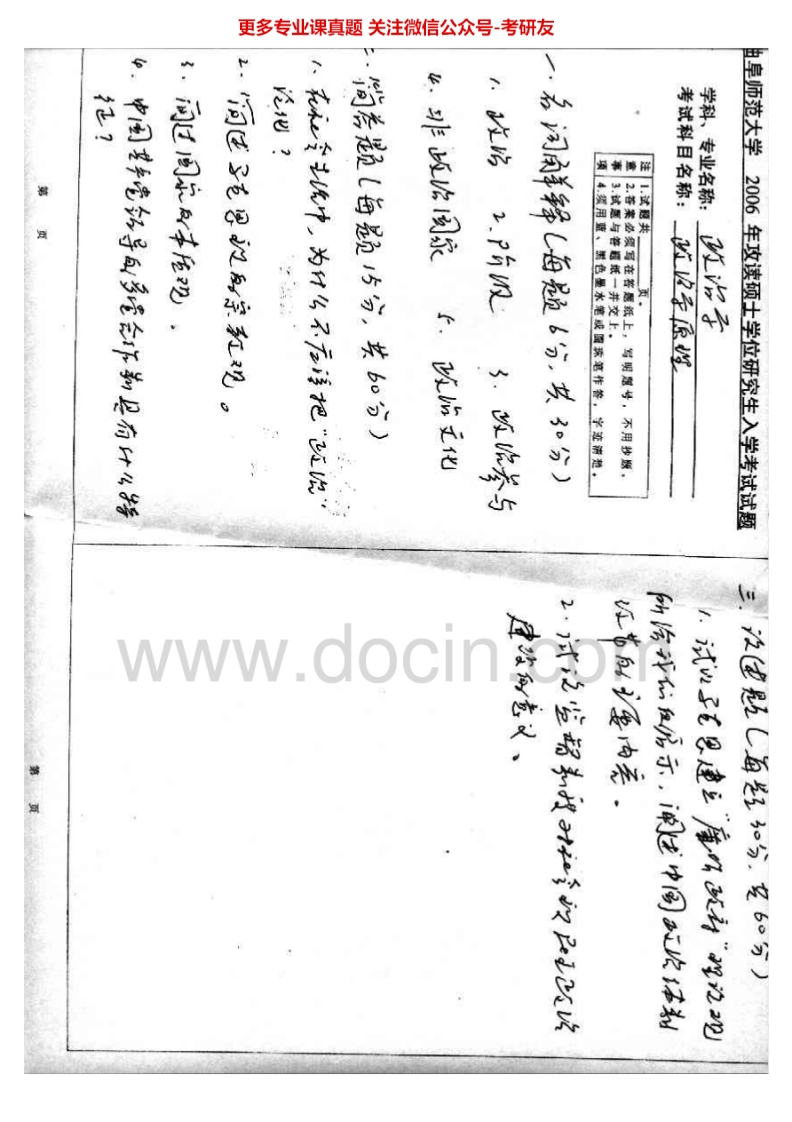 更多专业课真题 关注微信公众号-考研友
曲阜师范大学 2006 年攻读硕士学位研究生入学考试试题
学科、专业名称: 政治学
考试科目名称: 政治学原理
注意事项
1.试题共 页
2.答案必须写在答题纸上,写明题号,不用抄题。
3.试题与答题纸一并交上。
4.须用蓝、黑色墨水笔或圆珠笔作答,字迹清楚。
一、名词解释(每题6分,共30分)
1、政治 2、阶级 3、政治参与
4、非政治国家 5、政治文化
二、简答题(每题15分,共60分)
1、在社会生活中,为什么不应该把“政治”
泛化?
2、简述马克思主义的宗教观。
3、阐述国家的本质观。
4、中国共产党领导的多党合作制具有什么特
征?
第 页
三、论述题(每题30分,共60分)
1、试以马克思建立“廉价政府”理论观
所给我们的启示,阐述中国政治体制
改革的主要内容。
2、试论监督制度对社会主义民主政治
建设的意义。
第 页
www.docin.com